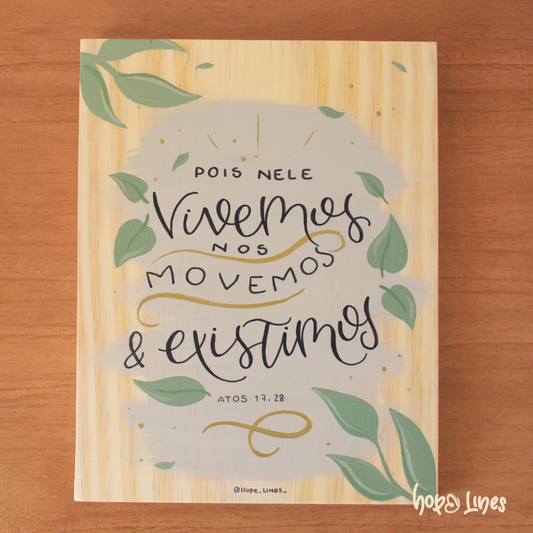 POIS NELE
Vivemos
NOS
MOVEMOS
& existimos
ATOS 17.28
@HOPE_LINES_
hope Lines